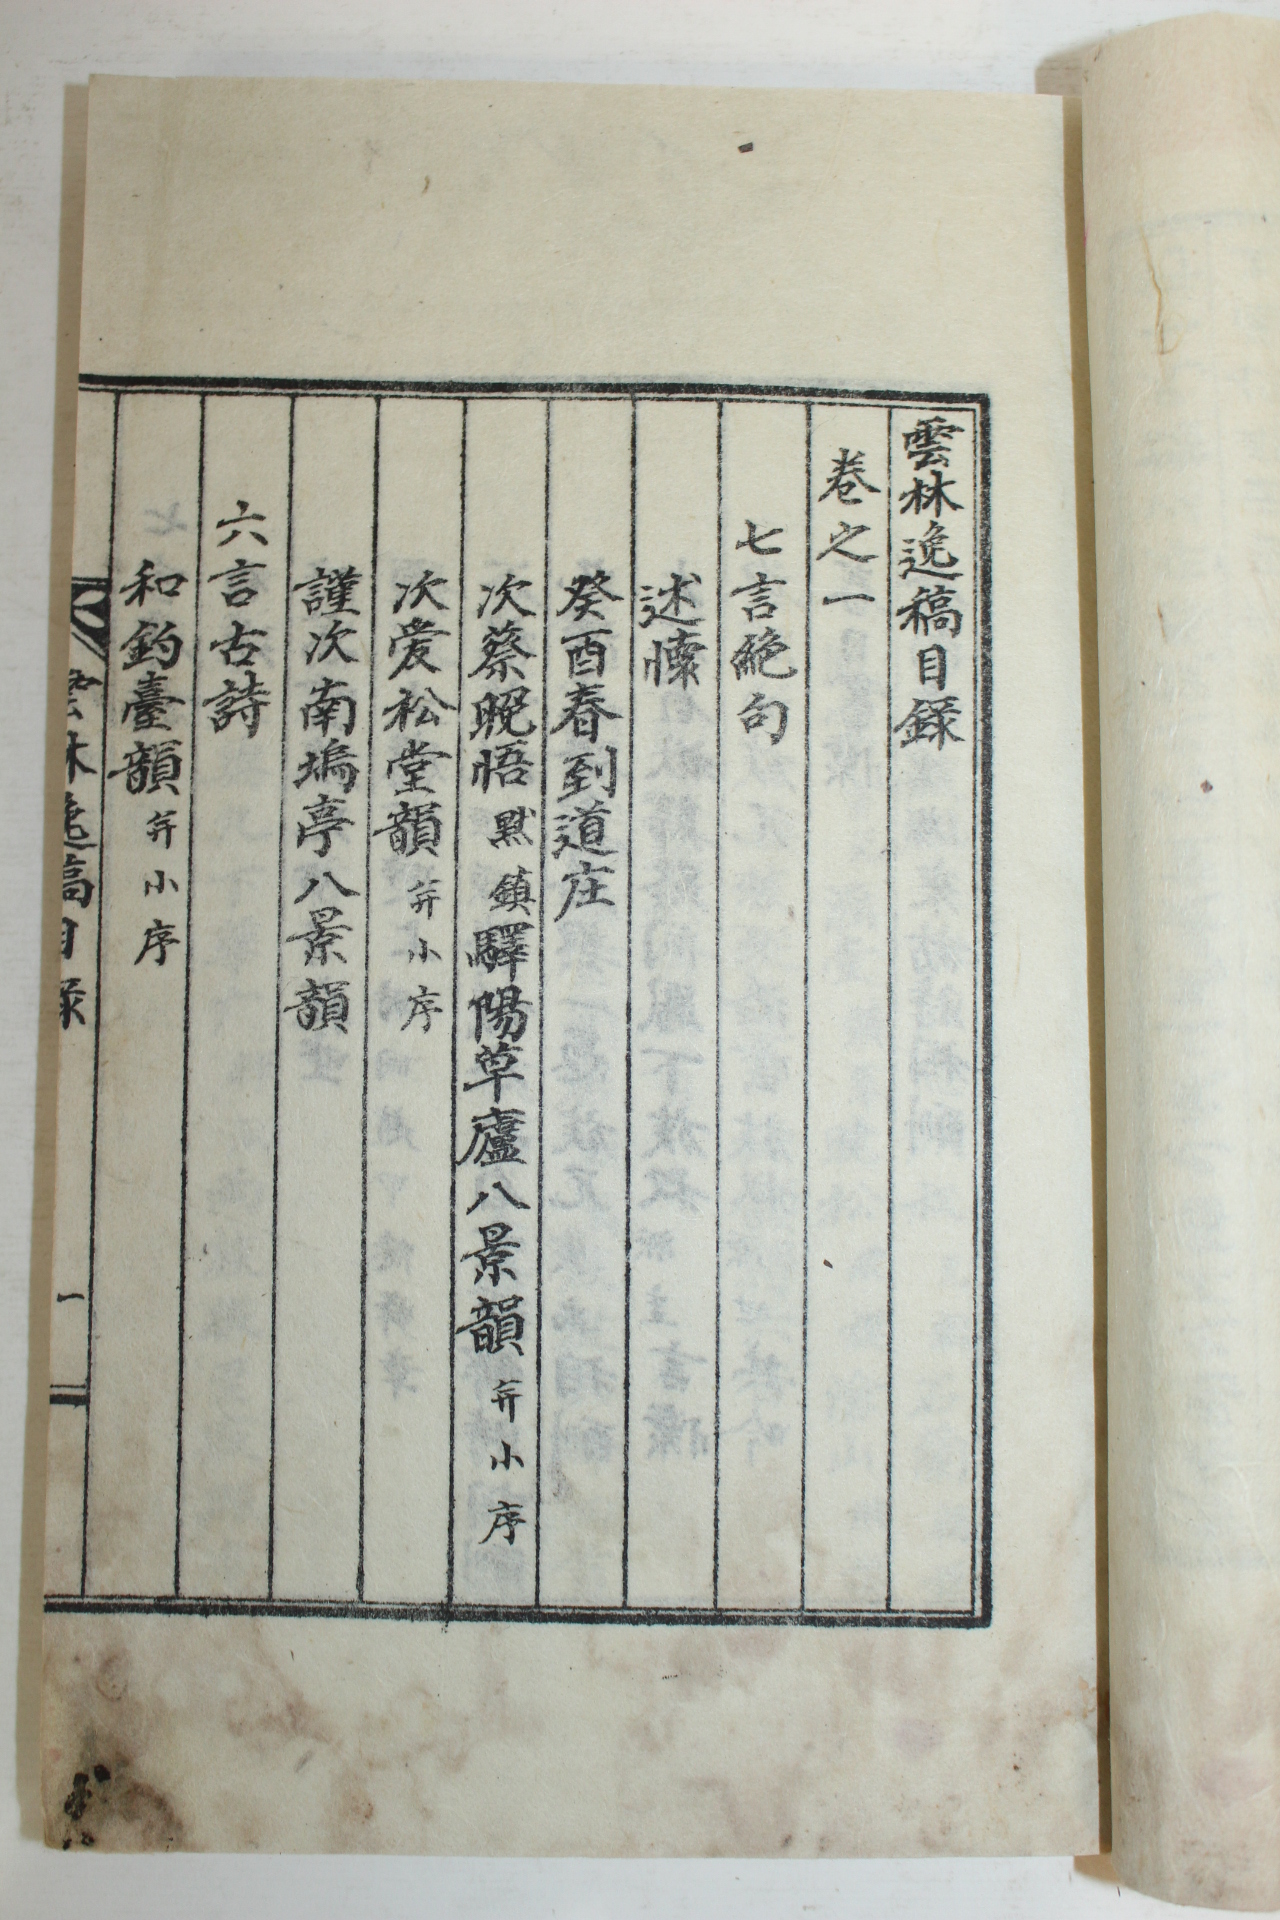 雲林逸稿目錄
卷之一
七言絶句
述懷
癸酉春到道庄
次蔡晩悟默鎭驛陽草廬八景韻幷小序
次愛松堂韻幷小序
謹次南塢亭八景韻
六言古詩
和釣臺韻幷小序
雲林逸稿目錄
一